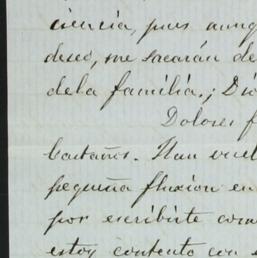 ciencia, pues aunq
deseo, me sacarán de
dela familia.; Dio
Dolores f
bastaños. Han vuel
pequeña fluxion en
por escribirte com
estoy contento con e